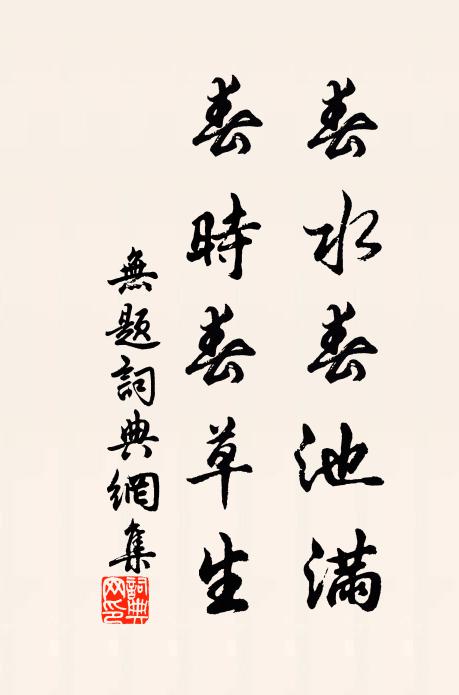 春水春池滿
春時春草生
無題詞典網集
詞典网印